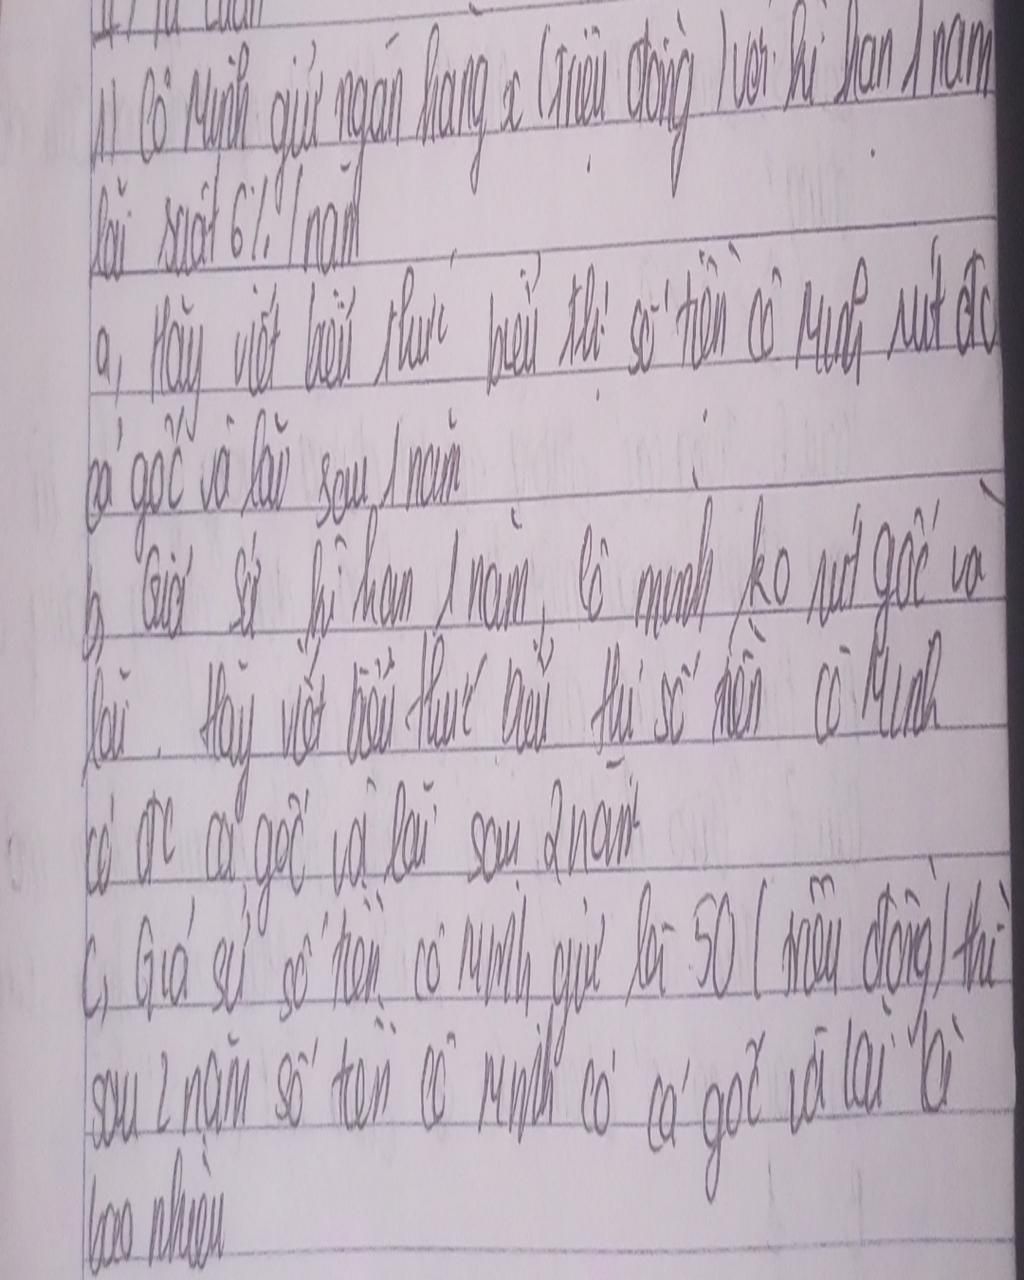 II) Tự luận
1) Cô Minh gửi ngân hàng x (triệu đồng) với kì hạn 1 năm
lãi suất 6% / năm
a, Hãy viết biểu thức biểu thị số tiền cô Minh rút đc
cả gốc và lãi sau 1 năm
b, Giả sử kì hạn 1 năm, cô minh ko rút gốc và
lãi. Hãy viết biểu thức biểu thị số tiền cô Minh
có đc cả gốc và lãi sau 2 năm
c, Giả sử số tiền cô Minh gửi là 50 (triệu đồng) thì
sau 2 năm số tiền cô Minh có cả gốc và lãi là
bao nhiêu